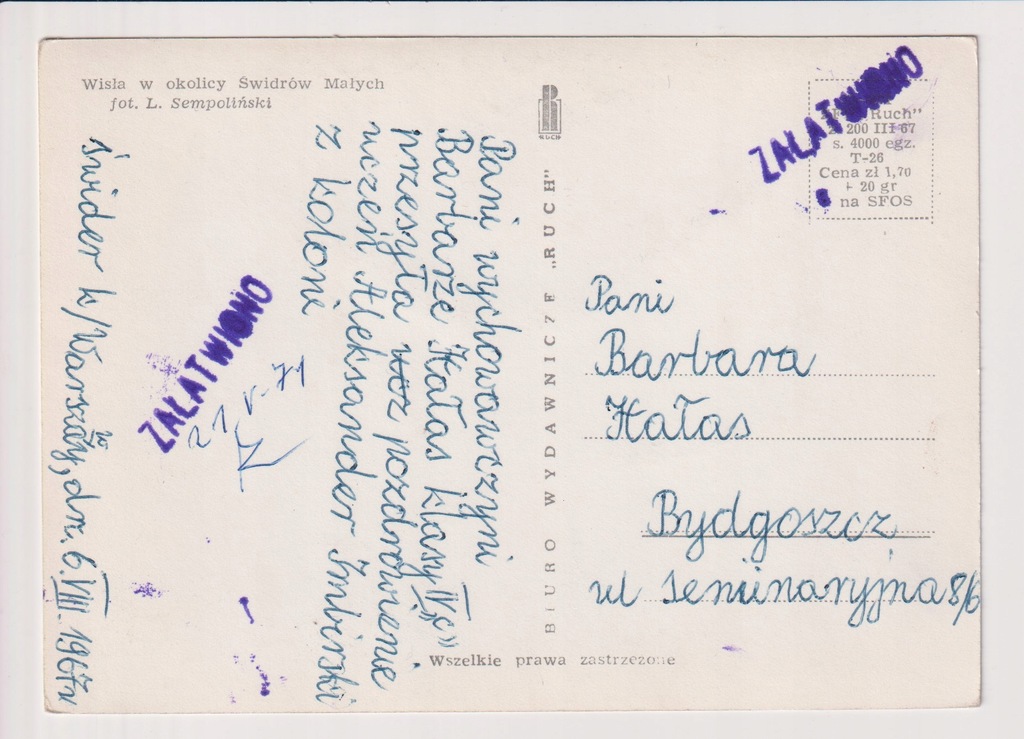 Wisła w okolicy Świdrów Małych
fot. L. Sempoliński
Świder k/Warszawy, dn. 6.VIII.1967r
Pani wychowawczyni
Barbarze Hałas klasy IV „c”
przesyła woz pozdrowienie
uczeń Aleksander Imbirski
z koloni
ZAŁATWIONO
21 V-71
RUCH
BIURO WYDAWNICZE „RUCH”
Wszelkie prawa zastrzeżone
ZAŁATWIONO
Ruch”
200 III 67
s. 4000 egz.
T-26
Cena zł 1,70
+ 20 gr
na SFOS
Pani
Barbara
Hałas
Bydgoszcz
ul Seminaryjna 8/6